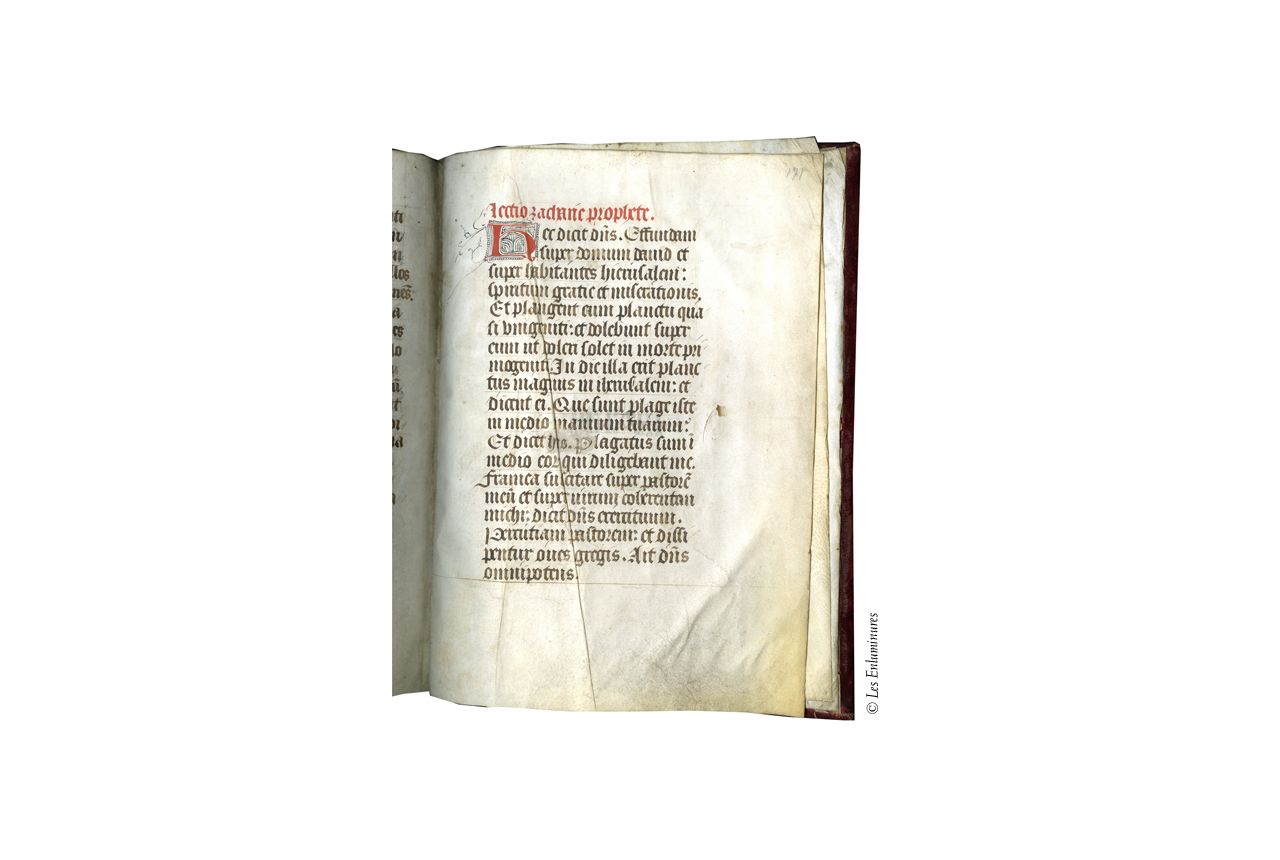 Lectio zacharie prophete.
Hec dicit dñs. Effundam
super domum dauid et
super habitantes hierusalem:
spiritum gratie et miserationis.
Et plangent eum planctu qua
si vnigeniti: et dolebunt super
eum ut doleri solet in morte pri
mogeniti. In die illa erit planc
tus magnus in iherusalem: et
dicent ei. Que sunt plage iste
in medio manuum tuarum:
Et dicet his. Plagatus sum ī
medio eor qui diligebant me.
Framea suscitare super pastorē
meū et super uirum coherentem
michi: dicit dñs exercituum.
Percutiam pastorem: et dissi
pentur oues gregis. Ait dñs
omnipotens.
los
nes.
a
es
lo
© Les Enluminures